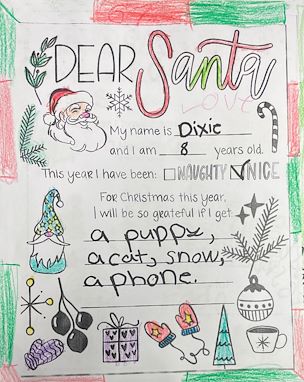 DEAR Santa
LOVE
My name is Dixie
and I am 8 years old.
This year I have been: NAUGHTY NICE
For Christmas this year,
I will be so grateful if I get
a puppy,
a cat, snow,
a phone.